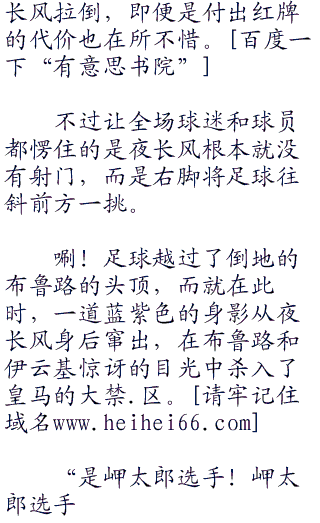 长风拉倒，即便是付出红牌
的代价也在所不惜。[百度一
下“有意思书院”]
不过让全场球迷和球员
都愣住的是夜长风根本就没
有射门，而是右脚将足球往
斜前方一挑。
唰！足球越过了倒地的
布鲁路的头顶，而就在此
时，一道蓝紫色的身影从夜
长风身后窜出，在布鲁路和
伊云基惊讶的目光中杀入了
皇马的大禁.区。[请牢记住
域名www.heihei66.com]
“是岬太郎选手！岬太
郎选手